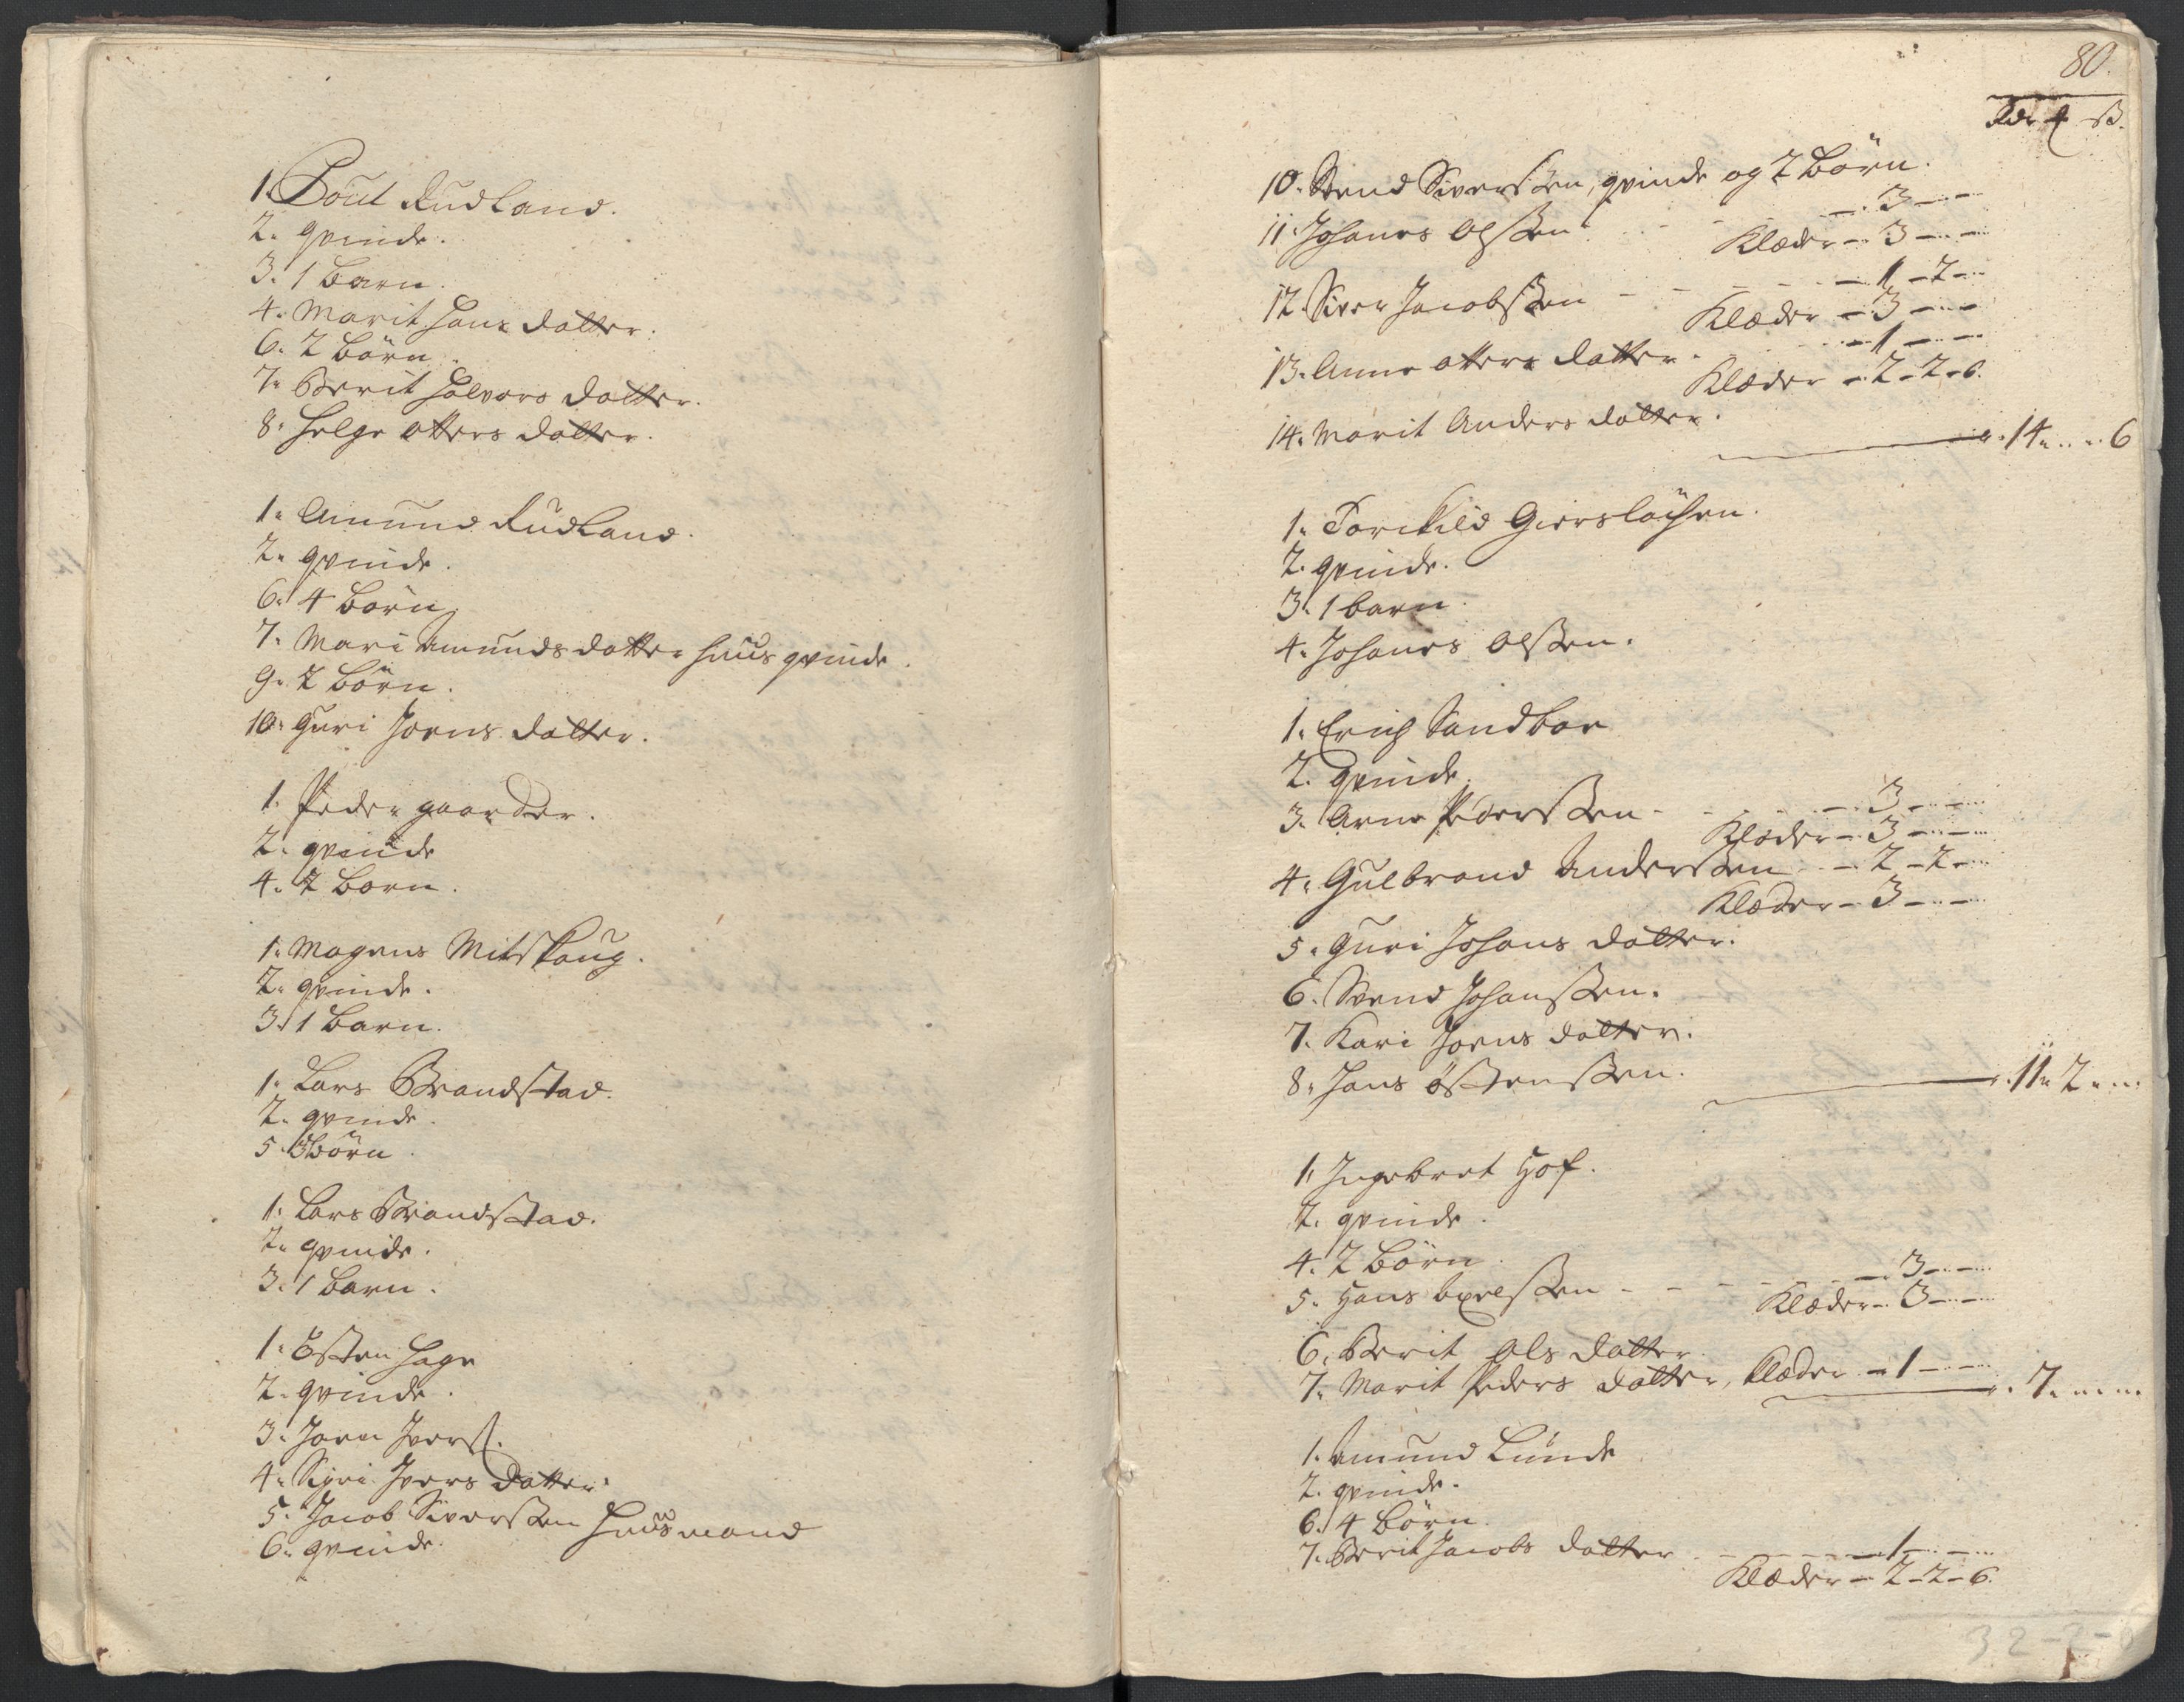 1. Poul Rudland.
2. Qvinde.
3. 1 Barn.
4. Marit Hans datter.
6. 2 Börn.
7. Berit Halvors datter.
8. Helge Otters datter.

1. Amund Rudland.
2. Qvinde.
6. 4 Börn
7. Mari Amunds datter huus qvinde.
9. 2 Börn.
10. Guri Joens datter.

1. Peder gaarder.
2. qvinde
4. 2 Born.

1. Mogens Mitskoug.
2. qvinde.
3. 1 Barn.

1. Lars Brandstad.
2. qvinde.
5. 3 Börn.

1. Lars Brandstad.
2. qvinde.
3. 1 Barn.

1. Östen Hage
2. qvinde.
3. Joen Iverss.
4. Sigri Ivers datter.
5. Jacob Siverssen Huusmand
6. qvinde.

80.
Rdr ß.
10. Svend Siverssen, qvinde og 2 Börn.
11. Johanes Olssen - 3 -
Klæder - 3 -
12. Siver Jacobssen - 1 - 2 -
Klæder - 3 -
13. Anne Otters datter - 1 -
Klæder - 2 - 2 - 6.
14. Marit Anders datter.
14 - 6

1. Torkild Giersløísen.
2. qvinde.
3. 1 barn.
4. Johanes Olssen.

1. Erich Sandboe
2. qvinde.
3. Arne Pederssen - 3 -
Klæder - 3 -
4. Gulbrand Anderssen - 2 - 2 -
Klæder - 3 -
5. Guri Johans datter.
6. Svend Johanssen.
7. Kari Joens datter.
8. Hans Östenssen.
11 - 2 -

1. Ingebret Hof.
2. qvinde.
4. 2 Börn.
5. Hans Axelssen - 3 -
Klæder - 3 -
6. Berit Ols datter
7. Marit Peders datter, Klæder - 1 -
7 -

1. Amund Lunde
2. qvinde.
6. 4 Börn.
7. Berit Jacobs datter - 1 -
Klæder - 2 - 2 - 6.
32 - 2 -